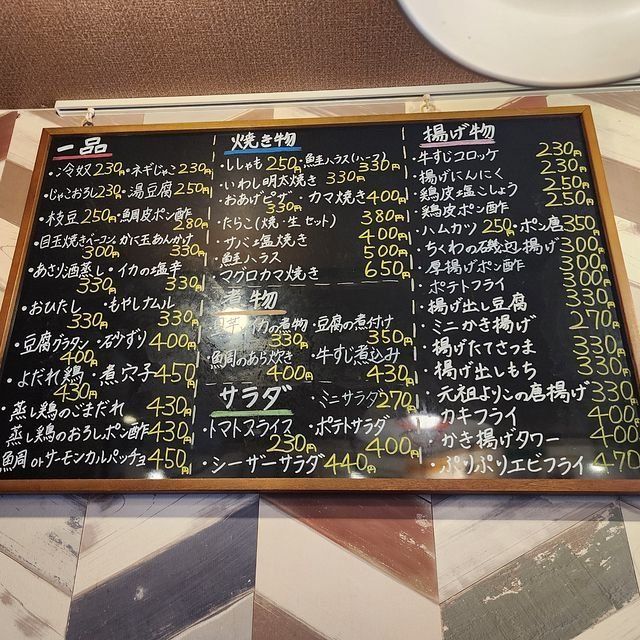 一品
・冷奴230円・ネギじゃこ230円
・じゃこおろし230円・湯豆腐250円
・枝豆250円・鯛皮ポン酢280円
・目玉焼きベーコン300円 かに玉あんかけ330円
・あさり酒蒸し330円・イカの塩辛330円
・おひたし330円・もやしナムル330円
・豆腐グラタン400円・砂ずり400円
・よだれ鶏430円・煮穴子450円
・蒸し鶏のごまだれ430円
・蒸し鶏のおろしポン酢430円
orサーモンカルパッチョ450円
焼き物
・ししゃも250円・鮭ハラス(ハーフ)330円
・いわし明太焼き330円
・おあげピザ330円 カマ焼き400円
・たらこ(焼・生 セット)380円
・サバ塩焼き400円
・鮭ハラス500円
・マグロカマ焼き650円
煮物
イカの煮物330円・豆腐の煮付け350円
のあら炊き400円・牛すじ煮込み430円
サラダ
・ミニサラダ270円
・トマトスライス230円・ポテトサラダ400円
・シーザーサラダ440円
揚げ物
・牛すじコロッケ230円
・揚げにんにく230円
・鶏皮塩こしょう250円
・鶏皮ポン酢250円
・ハムカツ250円・ポン唐350円
・ちくわの磯辺揚げ300円
・厚揚げポン酢300円
・ポテトフライ300円
・揚げ出し豆腐330円
・ミニかき揚げ270円
・揚げたてさつま330円
・揚げ出しもち330円
・元祖よりこの唐揚げ330円
・カキフライ400円
・かき揚げタワー400円
・ぷりぷりエビフライ470